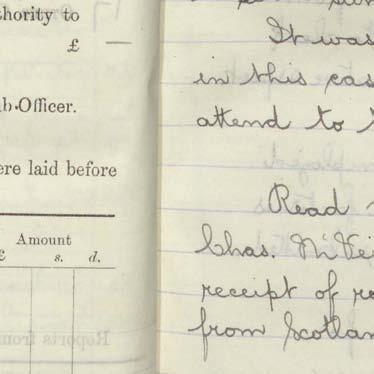 hority to
£ —
b-Officer.
ere laid before
Amount
£ s. d.
It was
in this cas
attend to
Read
Chas. McVei
receipt of re
from Scotlan